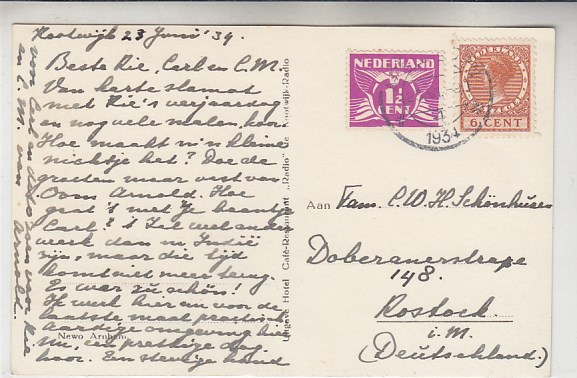 Kootwijk 23 Juni '34.
Beste Rie, Carl en C.M.
Van harte
met Rie's verjaardag
en nog vele malen, hoor.
Hoe maakt m'n kleine
nichtje het? Doe de
groeten maar vast van
Oom Arnold. Hoe
gaat 't met je baantje
Carl? 't Zal wel ander
werk dan in Indië
zijn, maar die tijd
komt niet meer terug.
Er was zu schön!
Ik werk hier nu voor de
laatste maal
aardige omgeving hier
nu, een prettige dag
hoor. Een stevige hand
van Carl en de Rie
en C.M. van Arnold.
Newo Arnhem
Uitgave Hotel Café-Restaurant „Radio" Kootwijk-Radio
NEDERLAND
1½
CENT
NEDERLAND
6 CENT
1934
Aan Fam. C.W.H. Schönhuser
Doberanerstrasse
148.
Rostock
i.M.
(Deutschland.)